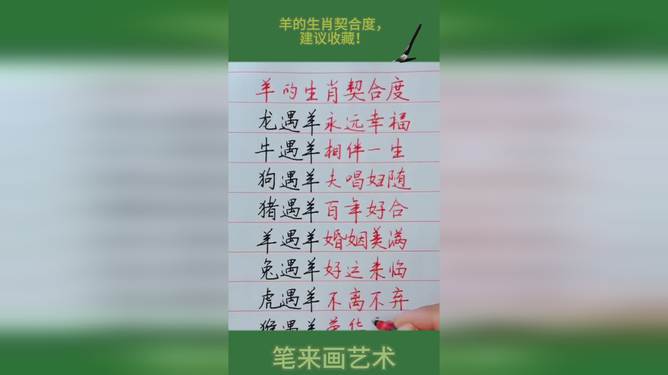 羊的生肖契合度，
建议收藏！
羊的生肖契合度
龙遇羊永远幸福
牛遇羊相伴一生
狗遇羊夫唱妇随
猪遇羊百年好合
羊遇羊婚姻美满
兔遇羊好运来临
虎遇羊不离不弃
猴遇羊荣华
笔来画艺术